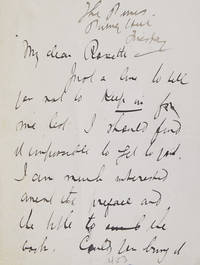 The Pines,
Putney Hill
Tuesday
My dear Rossetti
Just a line to tell
you not to keep in for
me lest I should find
it impossible to get to you.
I am much interested
anent the preface and
the title to the
book. Could you bring it